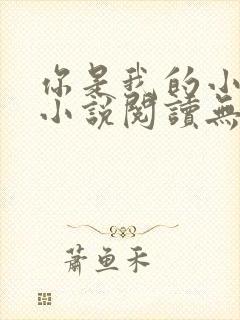 你是我的小
小說閱讀無
蕭魚禾